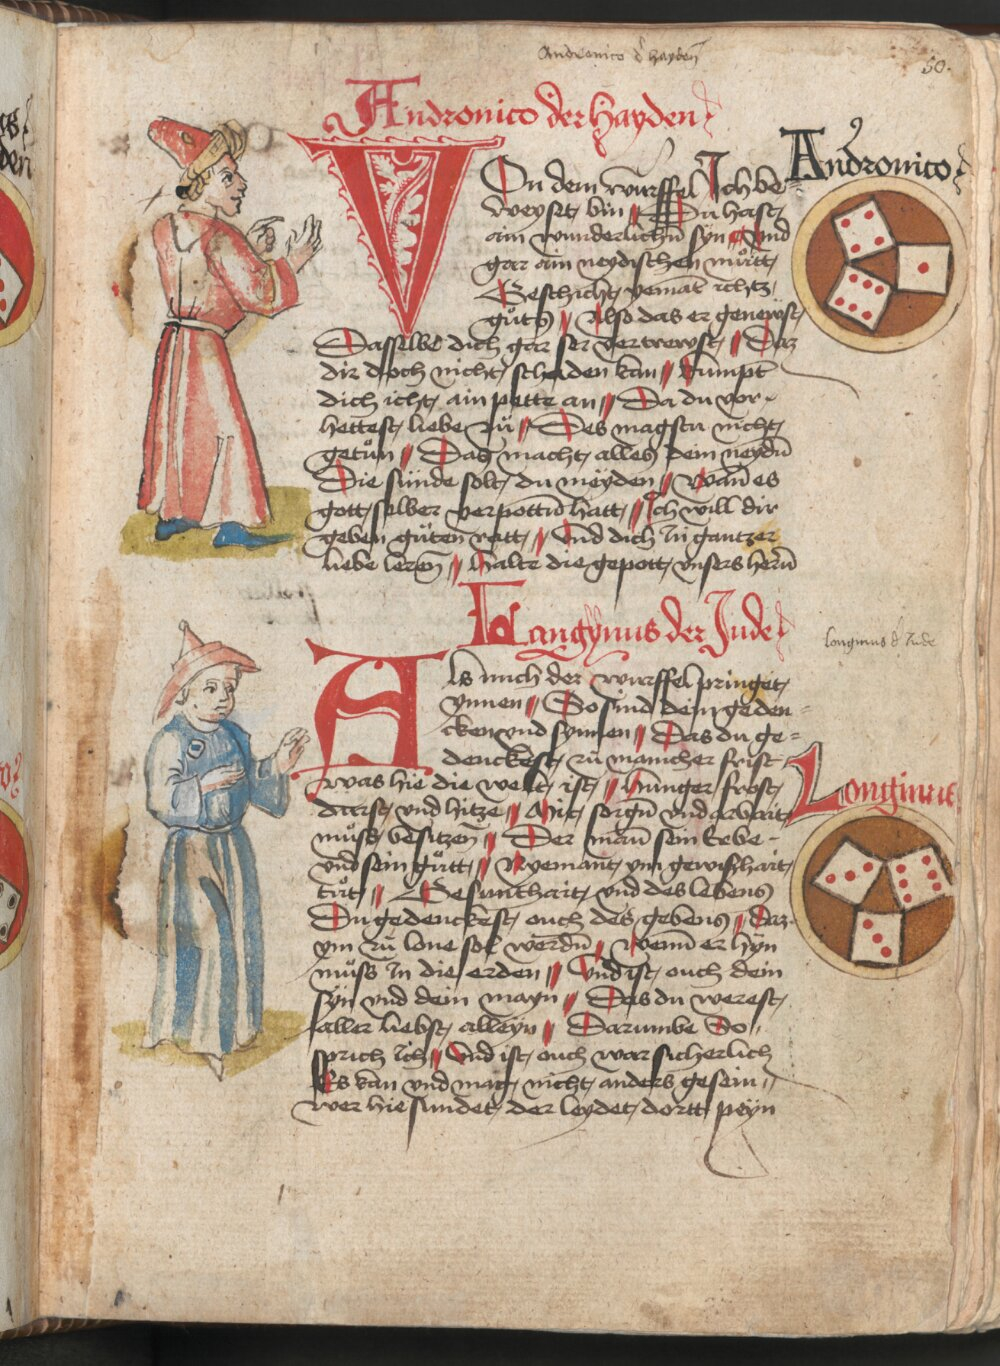 Andronico d' hayden
50.
Andronico der Hayden
Andronico
VOn dem wurffel Ich be=
weyset bin // Du hast
ain wunderlichen syn // Und
gar ain neydischen mutt
Geschicht yemat ichtz
guts // Also das er genewst
Dasselbe dich gar ser vertrewst // Daz
dir doch nicht schaden kan // Kumpt
dich icht ain pette an // Da du vor
hettest liebe zu // Des magstu nicht
getun // Das macht alles dein neydn
Die sunde solt du meyden // Wann es
gott selber verpottn hatt // Ich will dir
geben guten ratt // Und dich In gantzer
liebe leren // Halte die gepott unsers hern
Langynus der Jude
Longinus d' Jude
ALs mich der wurffel pringet
ynnen // So sind dein geden=
cken und synnen // Das du ge=
denckest zu mancher frist
was hie die welt ist // Hunger frost
durst und hitze // Mit sorgn und arbait
Longinus
muss besitzen // Der man sein Erbe
und sein gutt // Nyemant ym gewishait
tut // Gesunthait und des lebens
Du gedenckest auch des gebens // Daz
ym zu lone sol werdn // Wenn er hyn
muss In die erden // Und ist auch dein
syn und dein mayn // Das du werest
aller liebst alleyn // Darumbe So
sprich ich // Und ist auch war sicherlich
Es kan und mag nicht anders gesein //
wer hie sundet der leydet dortt peyn